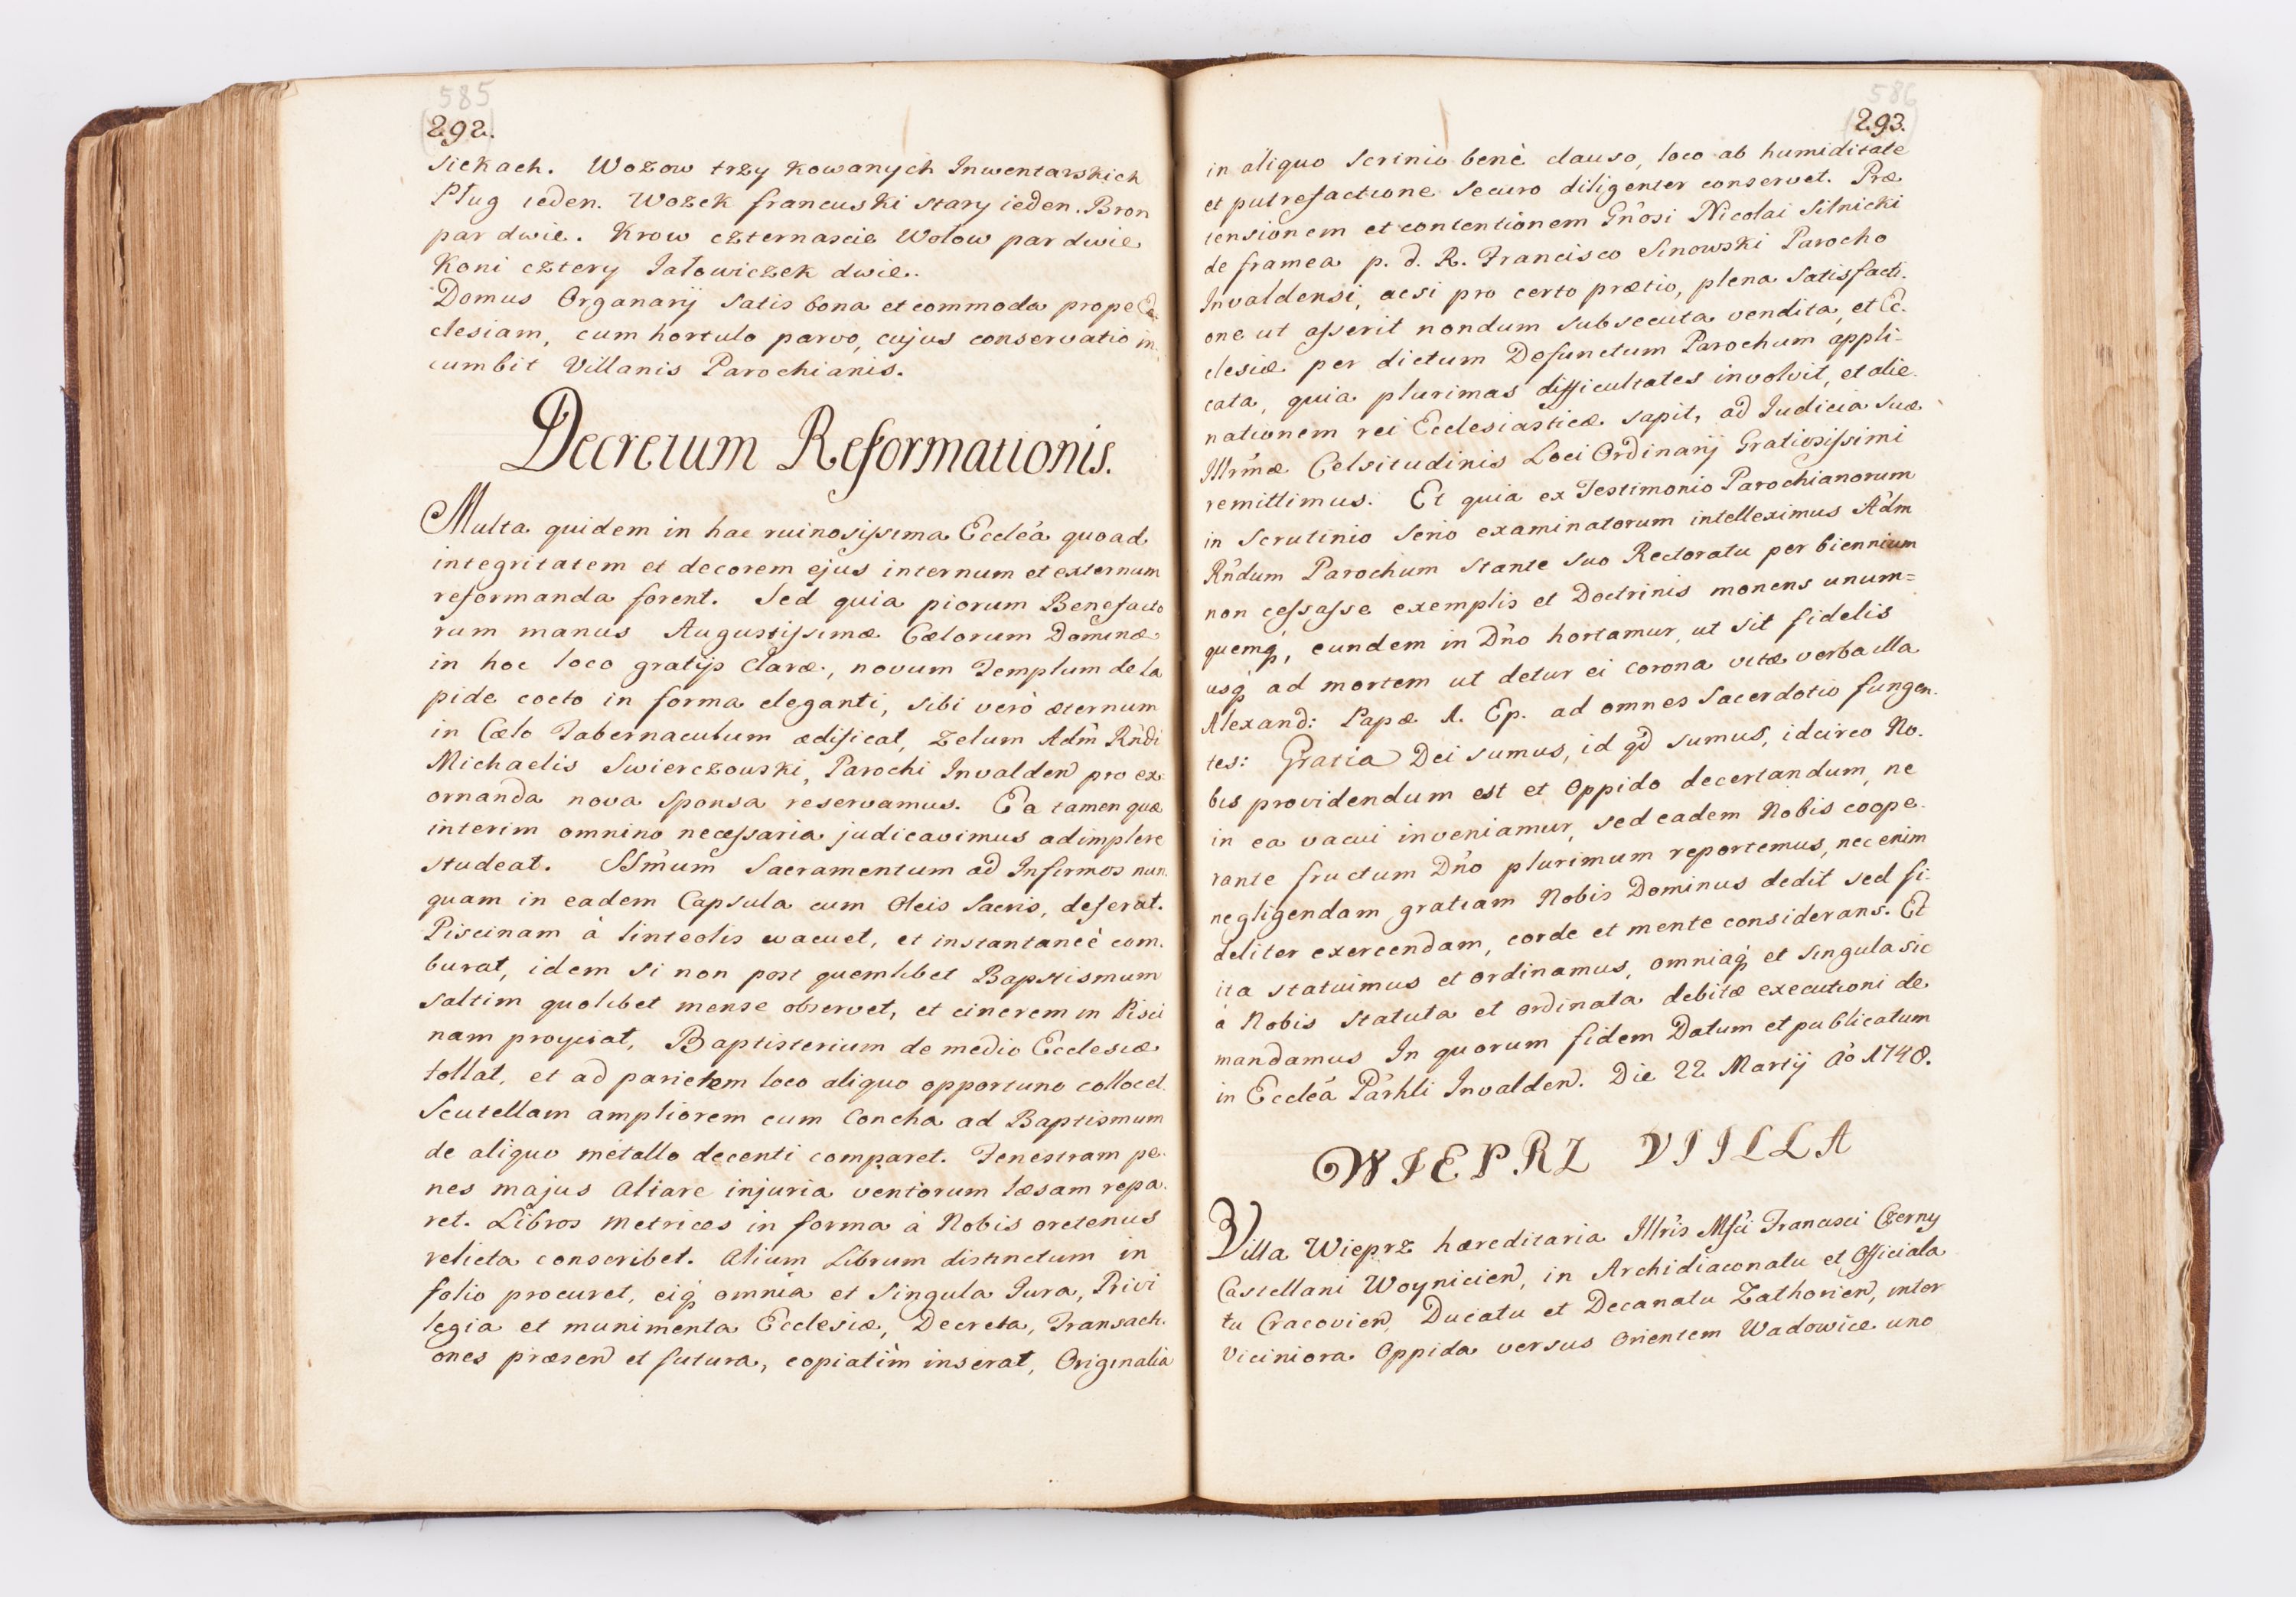 585
292.
siekach. Wozow trzy kowanych Inwentarskich
Pług ieden. Wozek francuski stary ieden. Bron
par dwie. Krow czternascie Wołow par dwie
Koni cztery Jałowiczek dwie.
Domus Organarij satis bona et commoda prope Ec
clesiam, cum hortulo parvo, cujus conservatio in
cumbit Villanis Parochianis.
Decretum Reformationis.
Multa quidem in hac ruinosissima Eccleá quoad
integritatem et decorem ejus internum et externum
reformanda forent. Sed quia piorum Benefacto
rum manus Augustissimæ Cælorum Dominæ
in hoc loco gratijs claræ, novum Templum de la
pide cocto in forma eleganti, sibi verò æternum
in Cælo Tabernaculum ædificat, zelum Adm̃ Rñdi
Michaelis Swierczowski, Parochi Invalden pro ex
ornanda nova sponsa reservamus. Ea tamen quæ
interim omnino necessaria judicavimus adimplere
studeat. SSm̃um Sacramentum ad Infirmos nun
quam in eadem Capsula cum Oleis Sacris, deferat.
Piscinam à linteolis evacuet, et instantaneè com
burat, idem si non post quemlibet Baptismum
saltim quolibet mense observet, et cinerem in Pisci
nam projiciat, Baptisterium de medio Ecclesiæ
tollat, et ad parietem loco aliquo opportuno collocet.
Scutellam ampliorem cum Concha ad Baptismum
de aliquo metallo decenti comparet. Fenestram pe
nes majus Altare injuria ventorum læsam repa
ret. Libros Metrices in forma à Nobis oretenus
relicta conscribet. Alium Librum distinctum in
folio procuret, eiq́ omnia et singula Jura, Privi
legia et munimenta Ecclesiæ, Decreta, Transacti
ones præsen et futura, copiatim inserat, Originalia
586
293.
in aliquo Scrinio benè clauso, loco ab humiditate
et putrefactione securo diligenter conservet. Præ
tensionem et contentionem Gñosi Nicolai Silnicki
de framea p. d. R. Francisco Sinowski Parocho
Invaldensi, acsi pro certo prætio, plena satisfacti
one ut asserit nondum subsecuta vendita, et Ec
clesiæ per dictum Defunctum Parochum appli
cata, quia plurimas difficultates involvit, et alie
nationem rei Ecclesiasticæ sapit, ad Iudicia suæ
Illrm̃æ Celsitudinis Loci Ordinarij Gratiosissimi
remittimus. Et quia ex Testimonio Parochianorum
in Scrutinio serio examinatorum intelleximus Adm̃
Rñdum Parochum stante suo Rectoratu per biennium
non cessasse exemplis et Doctrinis monens unum=
quemq́, eundem in Dño hortamur, ut sit fidelis
usq́ ad mortem ut detur ei corona vitæ verba illa
Alexand: Papæ 1. Ep. ad omnes Sacerdotio fungen
tes: Gratia Dei sumus, id qd́ sumus, idcirco No
bis providendum est et Oppido decertandum, ne
in ea vacui inveniamur, sed eadem Nobis coope
rante fructum Dño plurimum reportemus, nec enim
negligendam gratiam Nobis Dominus dedit sed fi
deliter exercendam, corde et mente considerans. Et
ita statuimus et ordinamus, omniaq́ et singula sic
à Nobis statuta et ordinata debitæ executioni de
mandamus In quorum fidem Datum et publicatum
in Eccleá Párhli Invalden. Die 22 Martij Aó 1748.
WIEPRZ VIILLA
Villa Wieprz hæreditaria Illrís Msci Francisci Czerny
Castellani Woynicien, in Archidiaconatu et Officiala
tu Cracovien, Ducatu et Decanatu Zathorien, inter
viciniora Oppida versus Orientem Wadowice uno